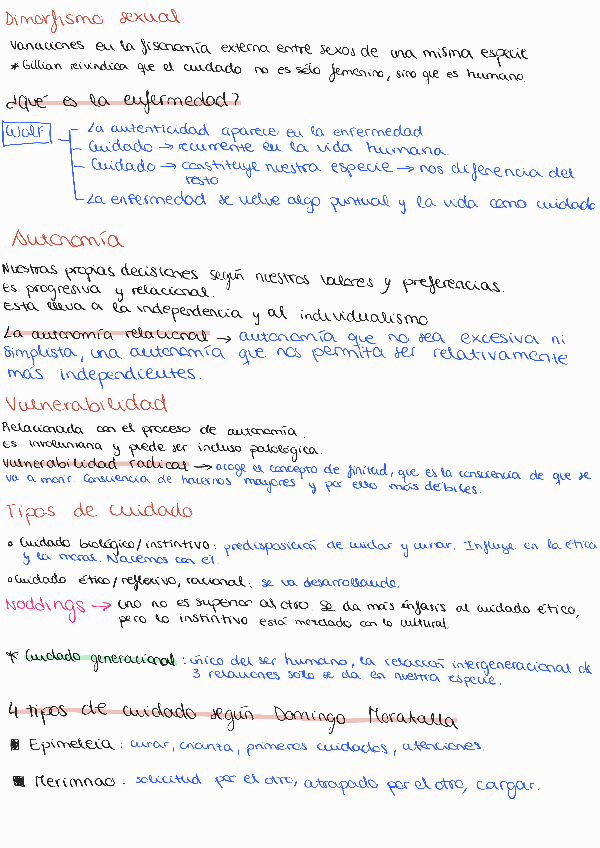 Dimorfismo sexual
Variaciones en la fisonomía externa entre sexos de una misma especie
* Gillian reivindica que el cuidado no es sólo femenino, sino que es humano.
¿Qué es la enfermedad?
Wolf
- La autenticidad aparece en la enfermedad
- Cuidado → recurrente en la vida humana
- Cuidado → constituye nuestra especie → nos diferencia del
resto
- La enfermedad se vuelve algo puntual y la vida como cuidado
Autonomía
Nuestras propias decisiones según nuestros valores y preferencias.
Es progresiva y relacional.
Esta lleva a la independencia y al individualismo
La autonomía relacional → autonomía que no sea excesiva ni
simplista, una autonomía que nos permita ser relativamente
más independientes.
Vulnerabilidad
Relacionada con el proceso de autonomía.
Es involuntaria y puede ser incluso patológica.
Vulnerabilidad radical → acoge el concepto de finitud, que es la consciencia de que se
va a morir. Consciencia de hacernos mayores y por ello más débiles.
Tipos de cuidado
• Cuidado biológico/instintivo: predisposición de cuidar y curar. Influye en la ética
y la moral. Nacemos con él.
• Cuidado ético/reflexivo, racional: se va desarrollando.
Noddings → uno no es superior al otro. Se da más énfasis al cuidado ético,
pero lo instintivo está mezclado con lo cultural.
* Cuidado generacional: único del ser humano, la relación intergeneracional de
3 relaciones solo se da en nuestra especie.
4 tipos de cuidado según Domingo Moratalla
Epimeleia: curar, crianza, primeros cuidados, atenciones.
Merimnao: solicitud por el otro, atrapado por el otro, cargar.